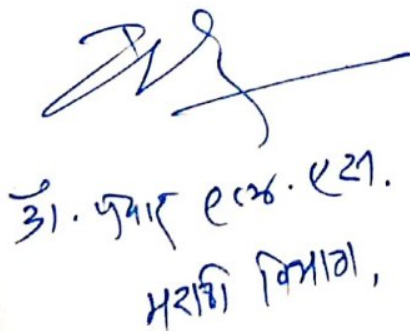 डॉ. पवार एल. एस.
मराठी विभाग,